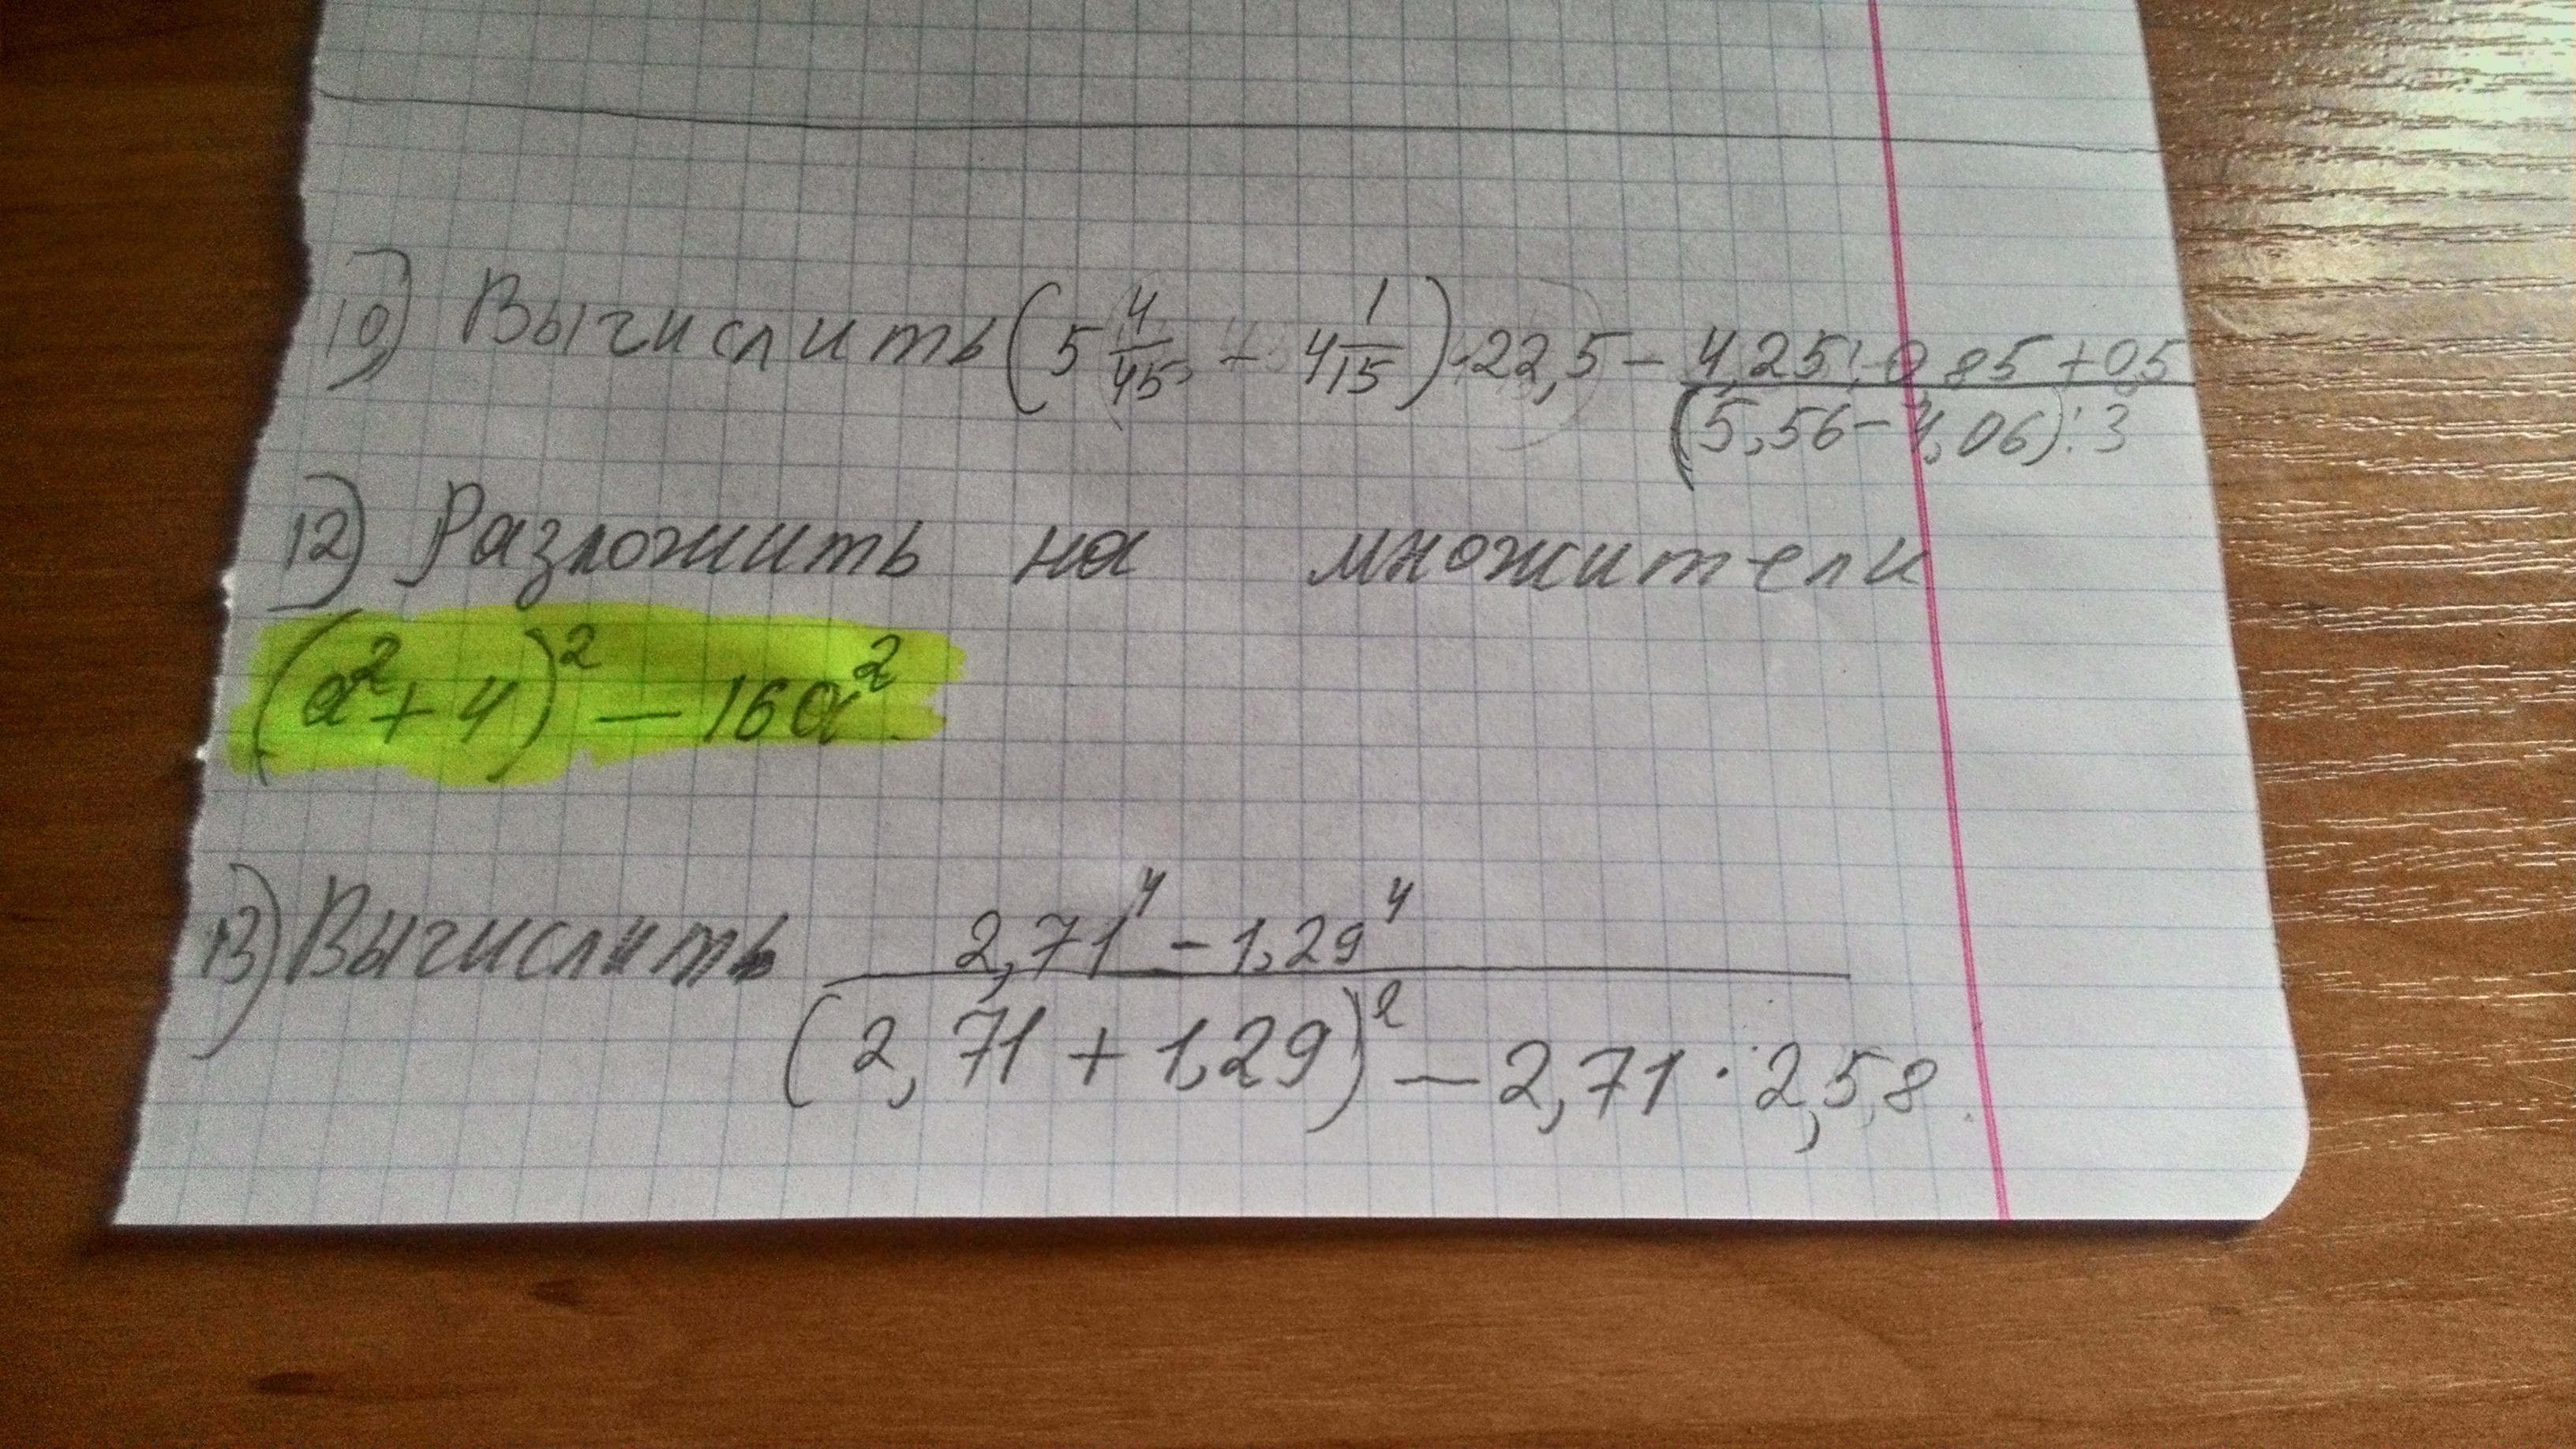 10) Вычислить (5 4/45 - 4 1/15) · 22,5 - (4,25 : 0,85 + 0,5) / ((5,56 - 4,06) : 3)
12) Разложить на множители
(a² + 4)² - 16a²
13) Вычислить (2,71⁴ - 1,29⁴) / ((2,71 + 1,29)² - 2,71 · 2,58)